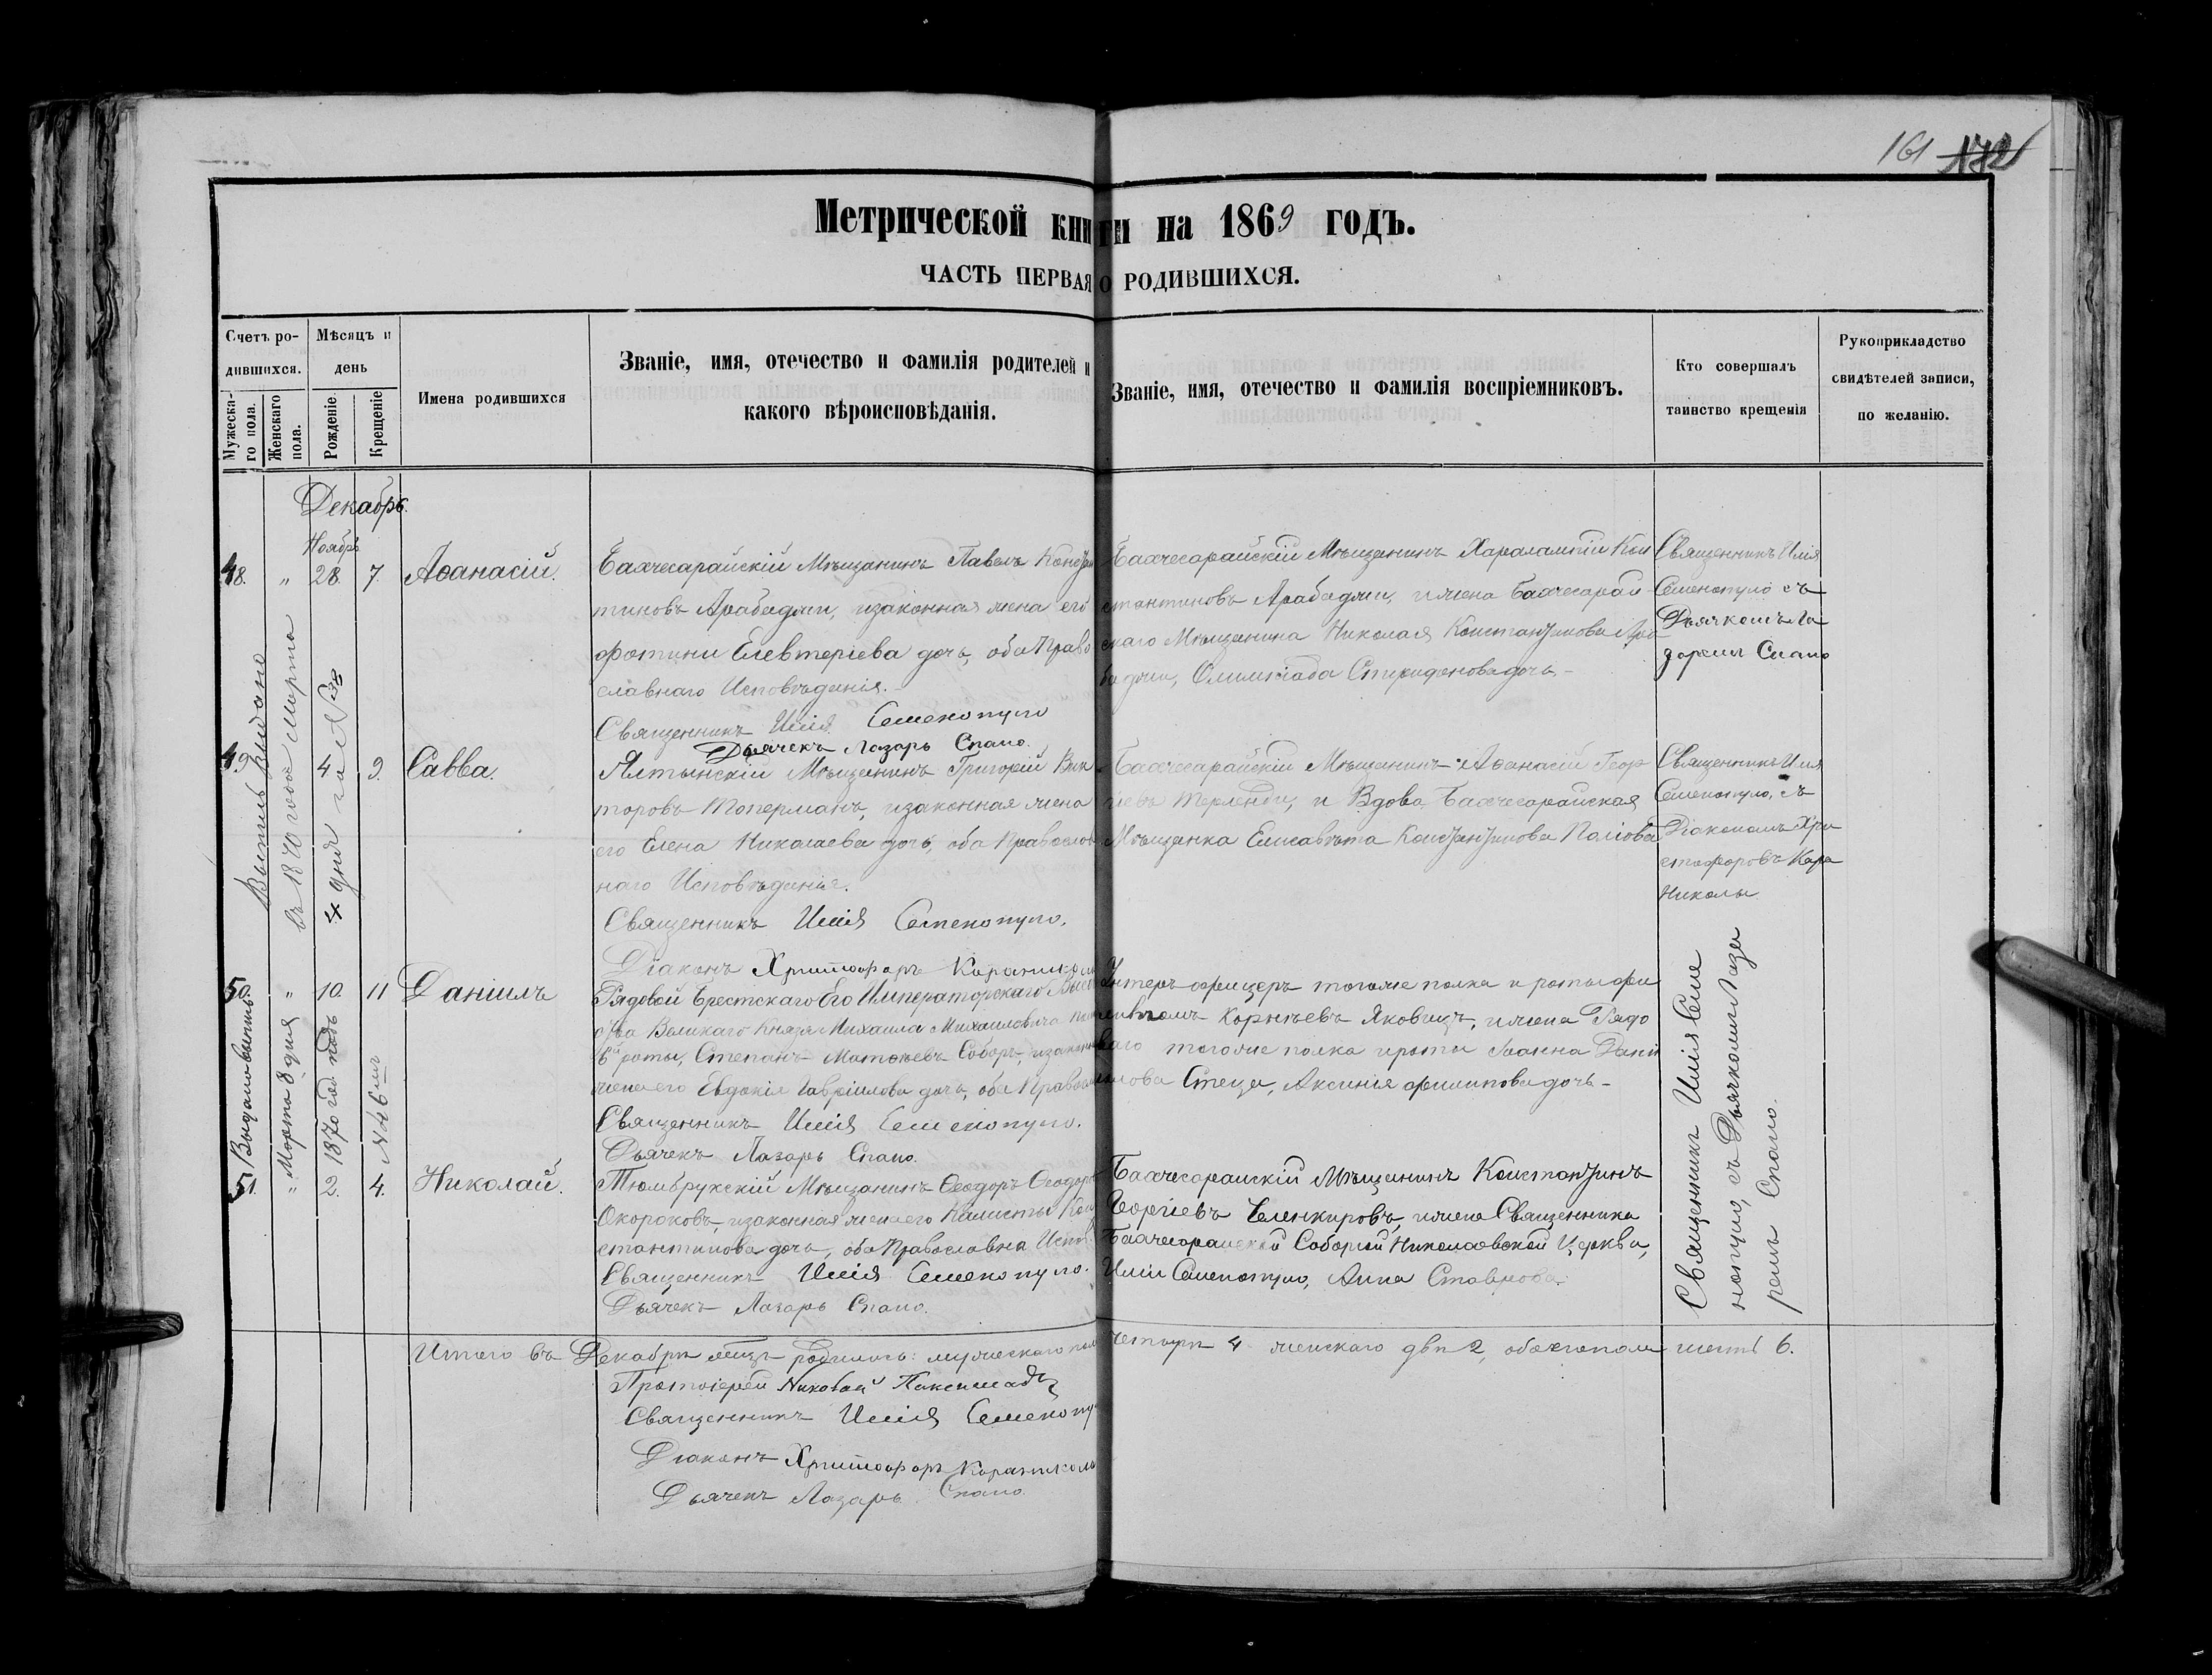 161 172
Метрической книги на 1869 годъ.
ЧАСТЬ ПЕРВАЯ О РОДИВШИХСЯ.
Счетъ ро-
дившихся.
Мужеска-
го пола.
Женскаго
пола.
Мѣсяцъ и
день
Рожденіе.
Крещеніе
Имена родившихся
Званіе, имя, отечество и фамилія родителей и
какого вѣроисповѣданія.
Званіе, имя, отечество и фамилія воспріемниковъ.
Кто совершалъ
таинство крещенія
Рукоприкладство
свидѣтелей записи,
по желанію.
Декабрь.
Ноябрь
48. " 28. 7. Аѳанасій.
Бахчесарайскій Мѣщанинъ Павелъ Констан
тиновъ Арабаджи, изаконная жена его
Фотини Елевтеріева дочь, оба Право
славнаго Исповѣданія.
Священникъ Илія Семенопуло
Дьячекъ Лазарь Спано.
Бахчесарайскій Мѣщанинъ Харалампій Кон
стантиновъ Арабаджи, ижена Бахчесарай
скаго Мѣщанина Николая Константинова Ара
баджи, Олимпіада Спиридонова дочь.
Священникъ Илія
Семенопуло съ
Дьячкомъ Ла
заремъ Спано
49. 4 9. Савва.
Ялтынскій Мѣщанинъ Григорій Вик
торовъ Топерманъ, изаконная жена
его Елена Николаева дочь, оба Православ
наго Исповѣданія.
Священникъ Илія Семенопуло.
Діаконъ Христофоръ Караниколи
Бахчесарайскій Мѣщанинъ Аѳанасій Геор
гіевъ Терленди, и Вдова Бахчесарайская
Мѣщанка Елисавѣта Константинова
Священникъ Илія
Семенопуло, съ
Діакономъ Хри
стофоровъ Кара
Николи
Выпись выдано
въ 1870 года Марта
4 дня за № 38
50. " 10. 11 Даніилъ
Рядовой Брестскаго Его Императорскаго Высоче
ства Великаго Князя Михаила Михаиловича полка
6й роты, Степанъ Матвѣевъ Соборъ, изаконная
жена его Евдокія Гавріилова дочь, оба Правосл
Священникъ Илія Семенопуло.
Дьячекъ Лазарь Спано.
Унтеръ-офицеръ тогоже полка и роты Фи
Корнѣевъ Яковицъ, ижена Рядо
ваго тогоже полка ироты Іоанна Дани
лова Стеца, Аксинія Филипова дочь
Выдано выпись
Марта 8 дня
1870 год подъ
№ 46
51. " 2. 4. Николай.
Тюмбрукскій Мѣщанинъ Ѳеодоръ Ѳеодоровъ
Окороковъ, изаконная жена его Калисты Кон
стантинова дочь, оба Православна Испов.
Священникъ Илія Семенопуло.
Дьячекъ Лазарь Спано.
Бахчесарайскій Мѣщанинъ Константинъ
Георгіевъ Челенкировъ, ижена Священника
Бахчесарайской Соборной Николаевской Церкви,
Иліи Семенопуло, Анна Ставрова.
Священникъ Илія Семе
нопуло, съ Дьячкомъ Лаза
ремъ Спано.
Итого въ Декабрѣ мѣцѣ родилось: мужескаго пола четыри 4 женскаго двѣ 2, обоегопола шесть 6.
Протоіерей Николай
Священникъ Илія Семенопу
Діаконъ Христофоръ Караниколи
Дьячекъ Лазарь Спано.